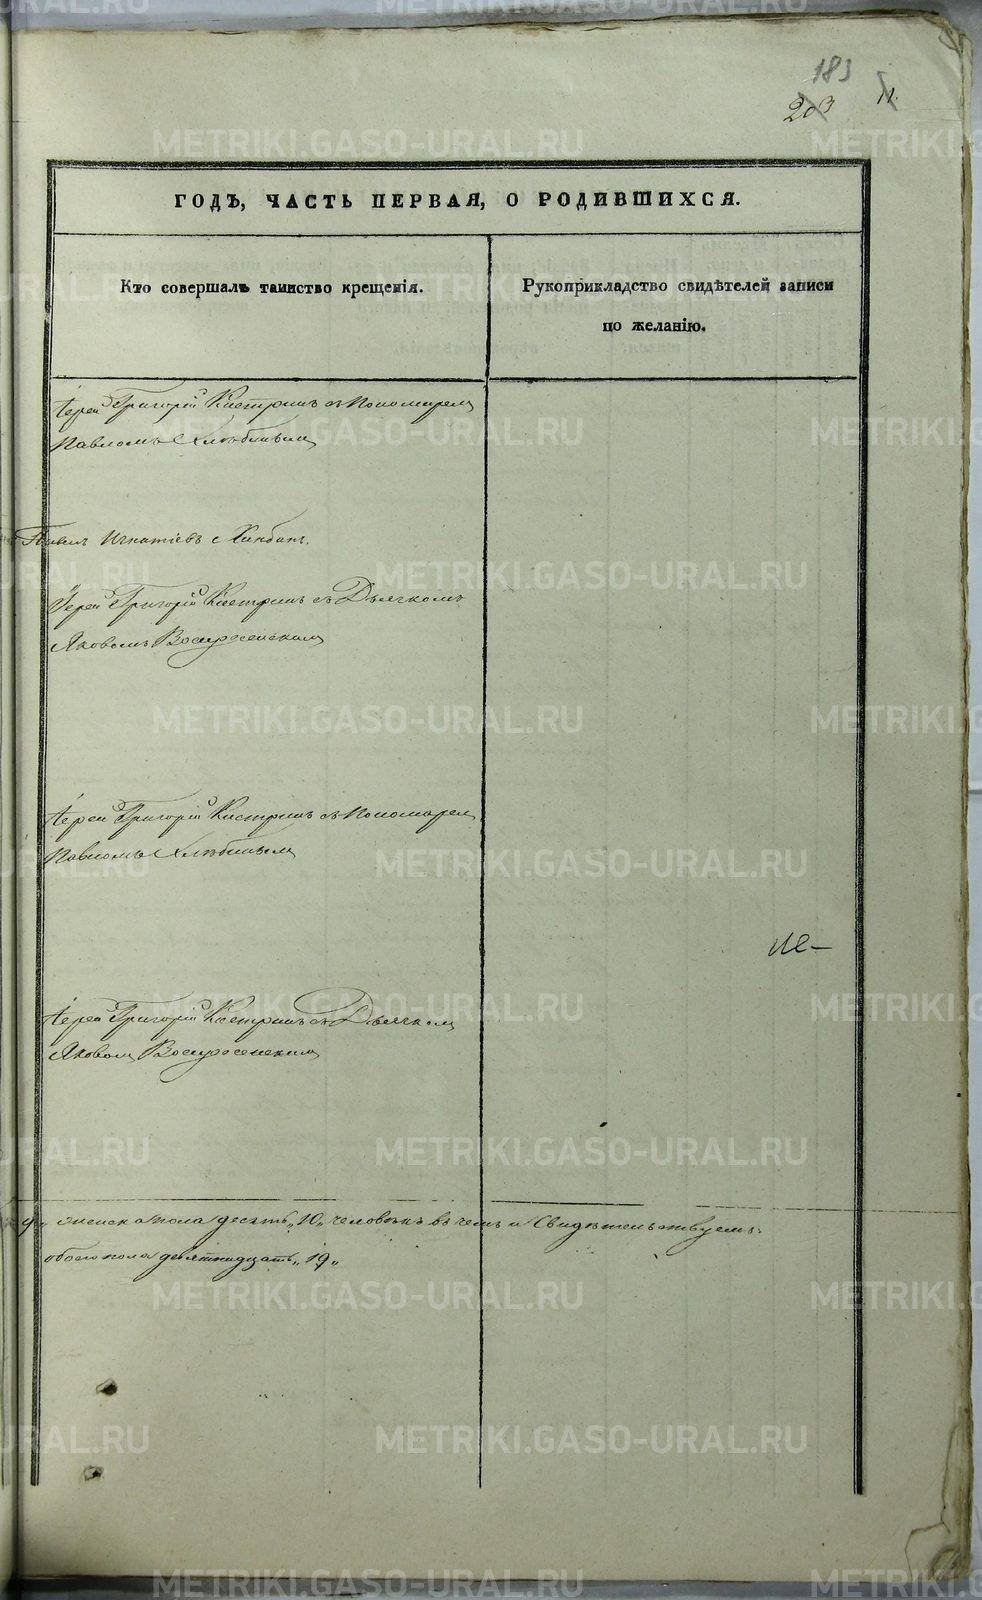 183
203 11.
ГОДЪ, ЧАСТЬ ПЕРВАЯ, О РОДИВШИХСЯ.
Кто совершалъ таинство крещенія.
Рукоприкладство свидѣтелей записи
по желанію.
Іерей Григорій Кастринъ съ Пономарем
Павломъ Хлѣбиным
Павелъ Игнатіевъ
Іерей Григорій Кастринъ съ Дьячкомъ
Яковомъ Воскресенским
Іерей Григорій Кастринъ съ Пономарем
Павломъ Хлѣбиным
Іерей Григорій Кастринъ съ Дьячком
Яковом Воскресенским
женска пола десять „10„ человѣкъ въ чемъ и Свидѣтельствуемъ:
обоего пола девятнадцать „19„
METRIKI.GASO-URAL.RU